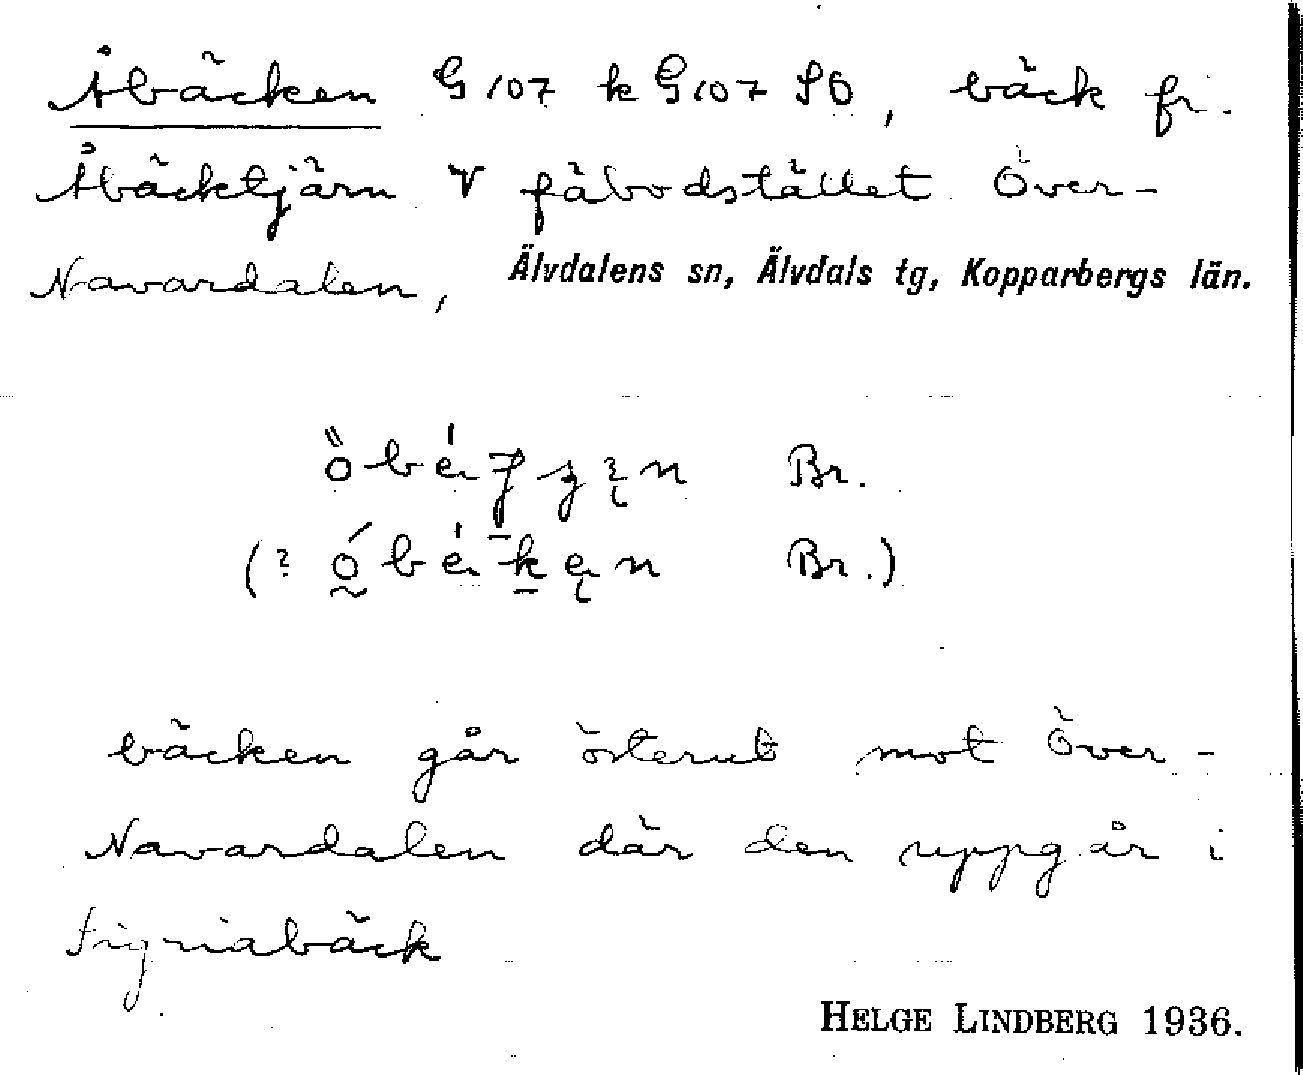 Åbäcken G 107 k G 107 SO, bäck fr.
Åbäcktjärn V fäbodstället Över-
Navardalen, Älvdalens sn, Älvdals tg, Kopparbergs län.
Br.
(? Br.)
bäcken går österut mot Över-
Navardalen där den uppgår i
Signiabäck
HELGE LINDBERG 1936.